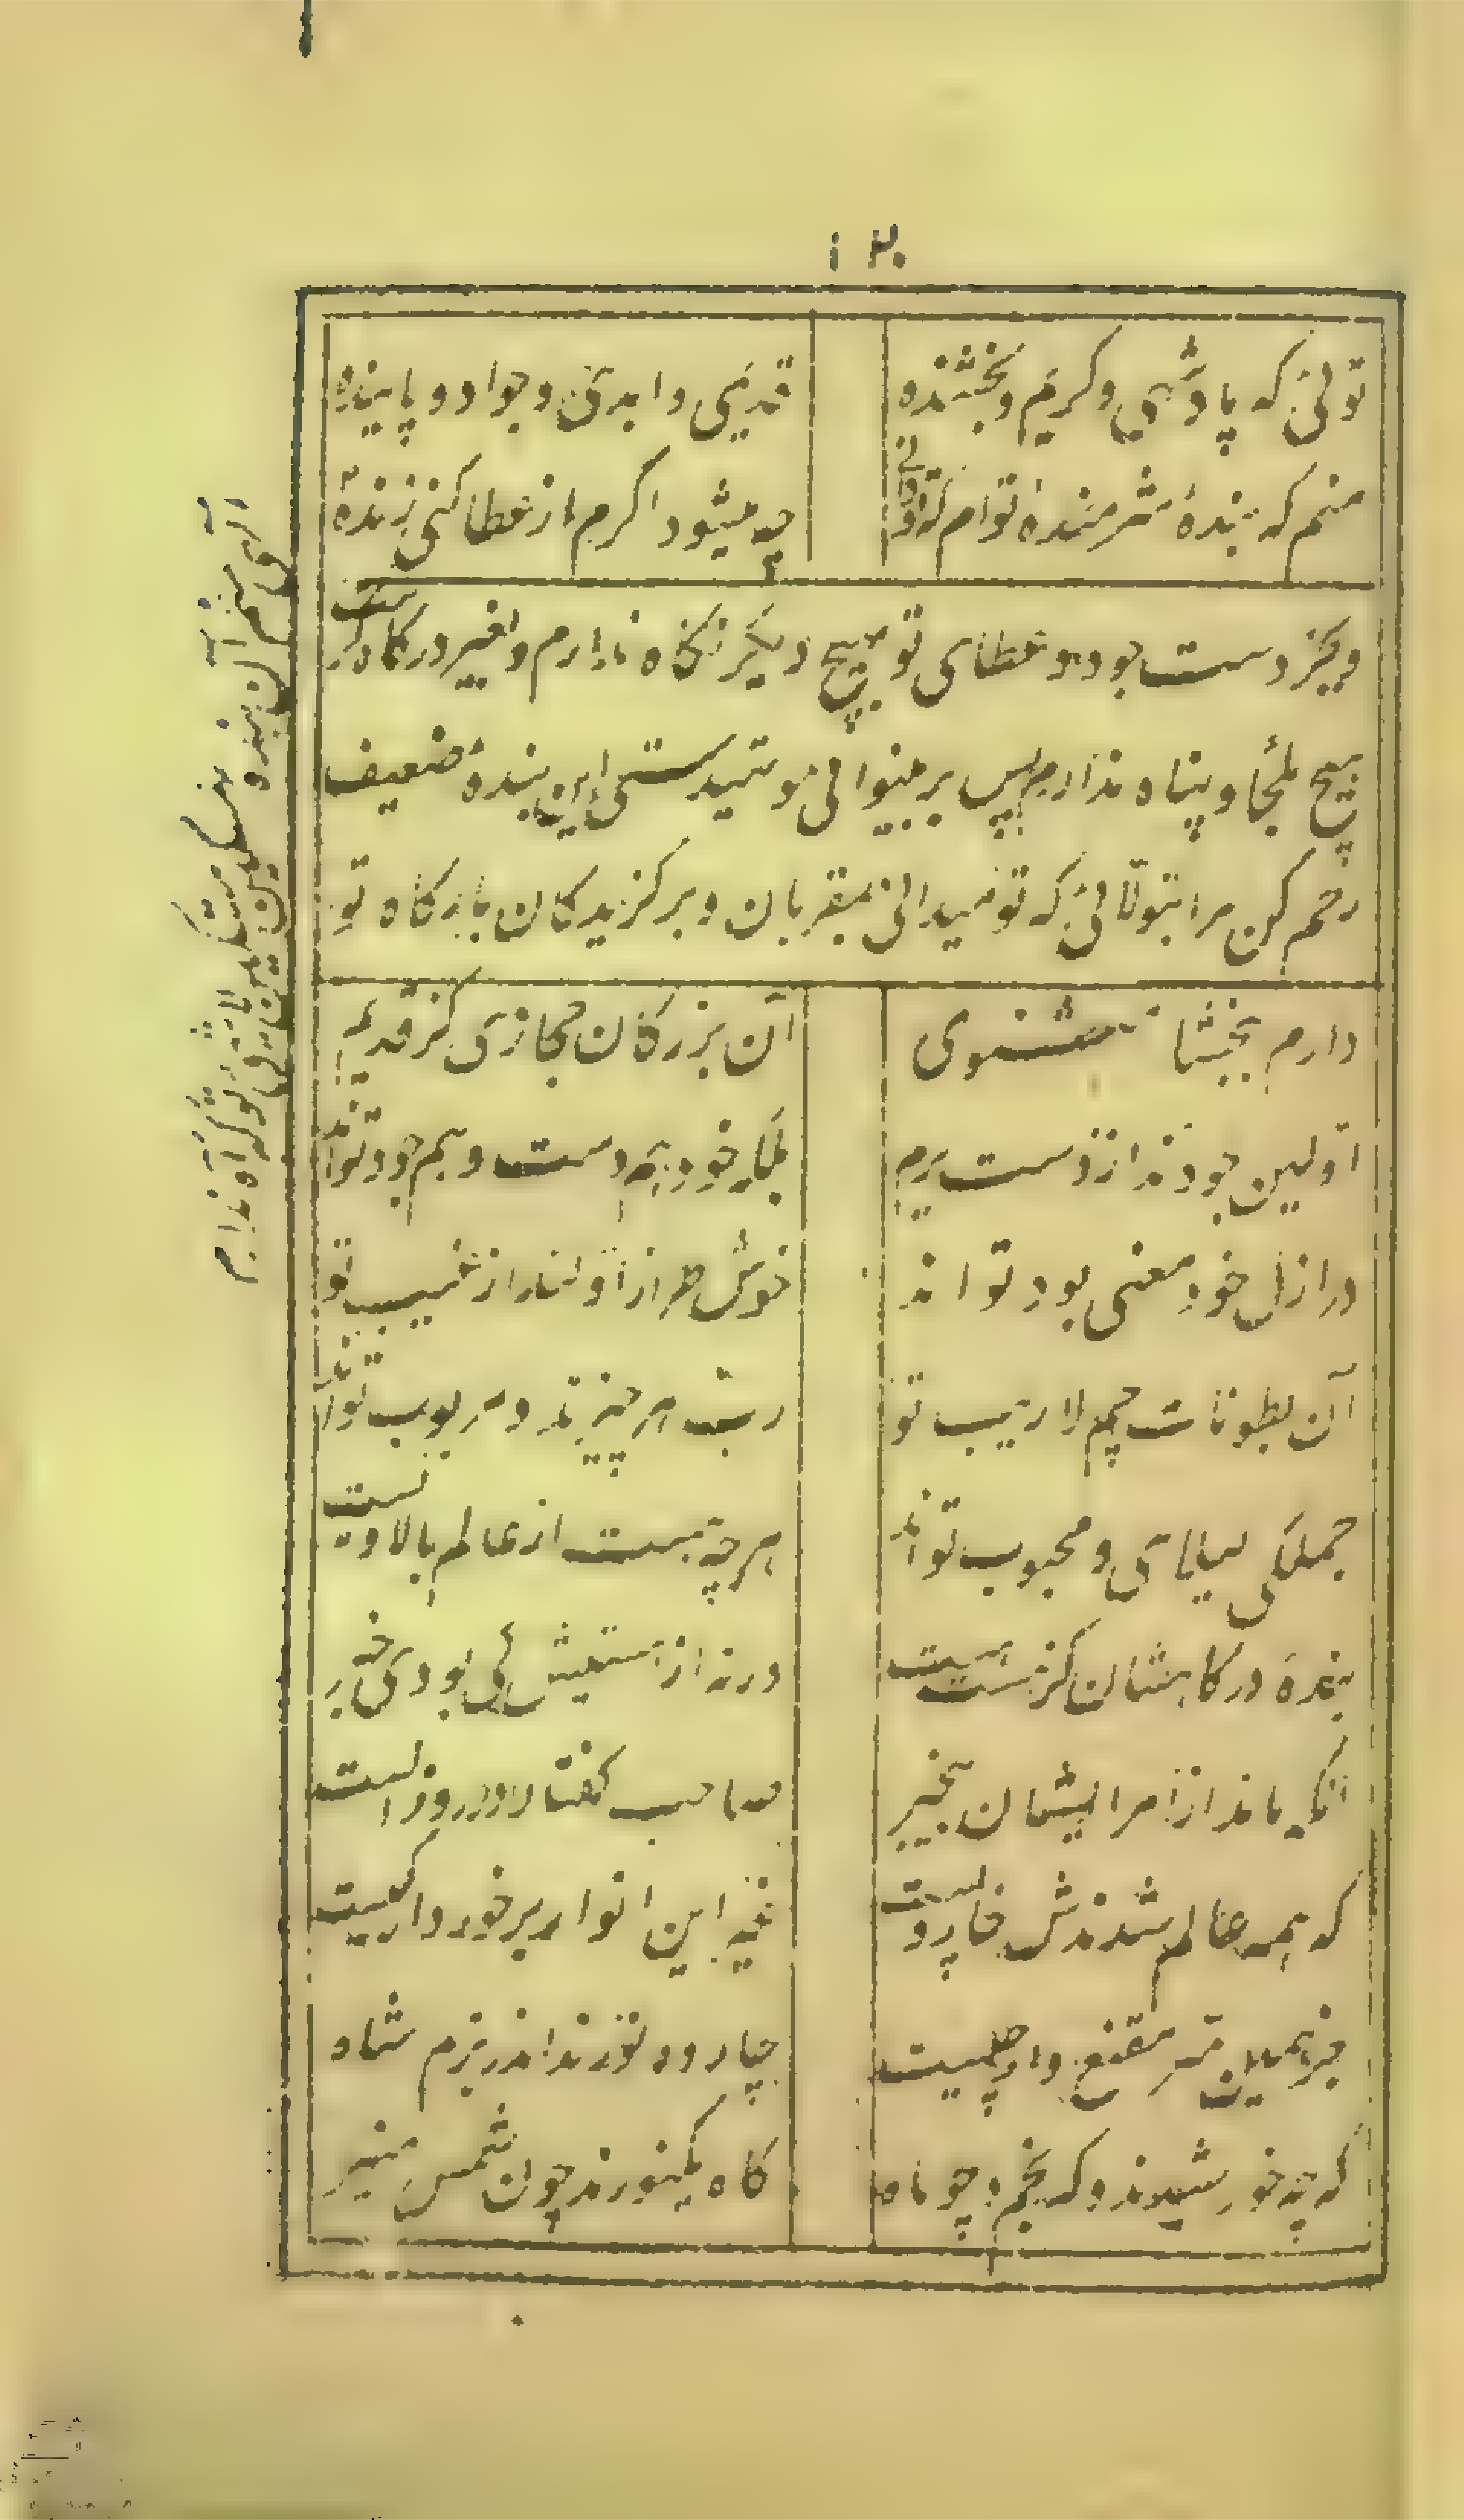 ۱۲۰
توئی که پادشهی و کریم و بخشنده
قدیمی و ابدی و جواد و پاینده
منم که بندهٔ شرمندهٔ توام
چه میشود اگرم از عطا کنی زنده
و بجز دست جود و عطای تو بهیچ دیگر نگاه ندارم و بغیر درگاه
هیچ ملجأ و پناه ندارم پس بر بینوائی و تهیدستی این بندهٔ ضعیف
رحم کن مرا بتولّائی که تو میدانی بمقربان و برگزیدگان بارگاه تو
دارم ببخشا مثنوی
آن بزرگان حجازی کز قدیم
اولین جودند از دست کریم
بلکه خود هم دست و هم جود تواند
در ازل خود معنی بود تواند
خوش طراز از غیب تو
آن بطونات لاریب تو
ربّ هر چیزند و مربوب تواند
جملگی لیلای و محبوب تواند
هر چه هست از عالم بالا و پست
بندهٔ درگاهشان کز هست هست
ورنه از هستیش کی بودی خبر
آنکه ماند از امر ایشان بیخبر
صاحب گفتار در روز الست
که همه عالم شدندش
غیر این انوار برخوردار کیست
جز همین
چارده نورند اندر بزم شاه
که چه خورشیدند و که نجم و چو ماه
گاه یکنورند چون شمس منیر
آری منم آن بندهٔ مسکین